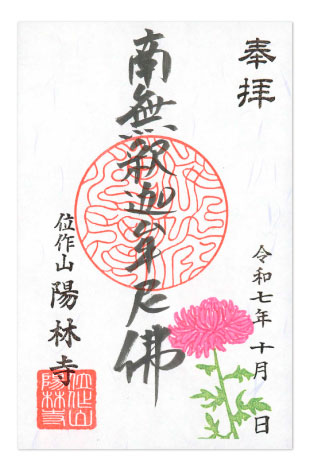 奉拝
南無釈迦牟尼佛
令和七年十月 日
位作山 陽林寺
位作山
陽林寺